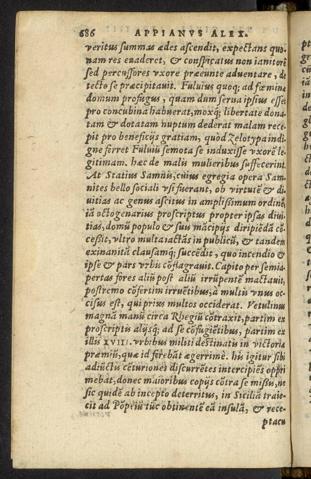 686 APPIANVS ALEX.
veritus summas ædes ascendit, expectans quo-
nam res euaderet, & conspicatus non ianitorē
sed percussores vxore præeunte aduentare, de
tecto se præcipitauit. Fuluius quoq; ad fœminæ
domum profugus, quam dum serua ipsius esset
pro concubina habuerat, moxq; libertate dona-
tam & dotatam nuptum dederat malam rece-
pit pro beneficijs gratiam, quòd Zelotypa indi-
gne ferret Fuluiū semota se induxisse vxorē le-
gitimam. hæc de malis mulieribus suffecerint.
At Statius Samnis, cuius egregia opera Sam-
nites bello sociali vsi fuerant, ob virtutē & di-
uitias ac genus ascitus in amplissimum ordinē,
iā octogenarius proscriptus propter ipsas diui-
tias, domū populo & suis mācipijs diripiēdā cō-
cessit, vltro multa iactās in publicū, & tandem
exinanitā clausamq; succēdit, quo incendio &
ipse & pars vrbis cōflagrauit. Capito per semia-
pertas fores aliū post aliū irrūpentē mactauit,
postremo cōfertim irruētibus, à multis vnus oc-
cisus est, qui prius multos occiderat. Vetulinus
magnā manū circa Rhegiū cōtraxit, partim ex
proscriptis alijsq; ad se cōfugiētibus, partim ex
illis XVIII. vrbibus militi destinatis in victoriæ
præmiū, quæ id ferebāt ægerrimè. hū igitur sibi
adiūctis cēturiones discurrētes intercipiēs oppri
mebat, donec maioribus copijs cōtra se missis, ne
sic quidē ab incepto deterritus, in Siciliā traie-
cit ad Pōpeiū tūc obtinentē eā insulā, & rece-
ptacu